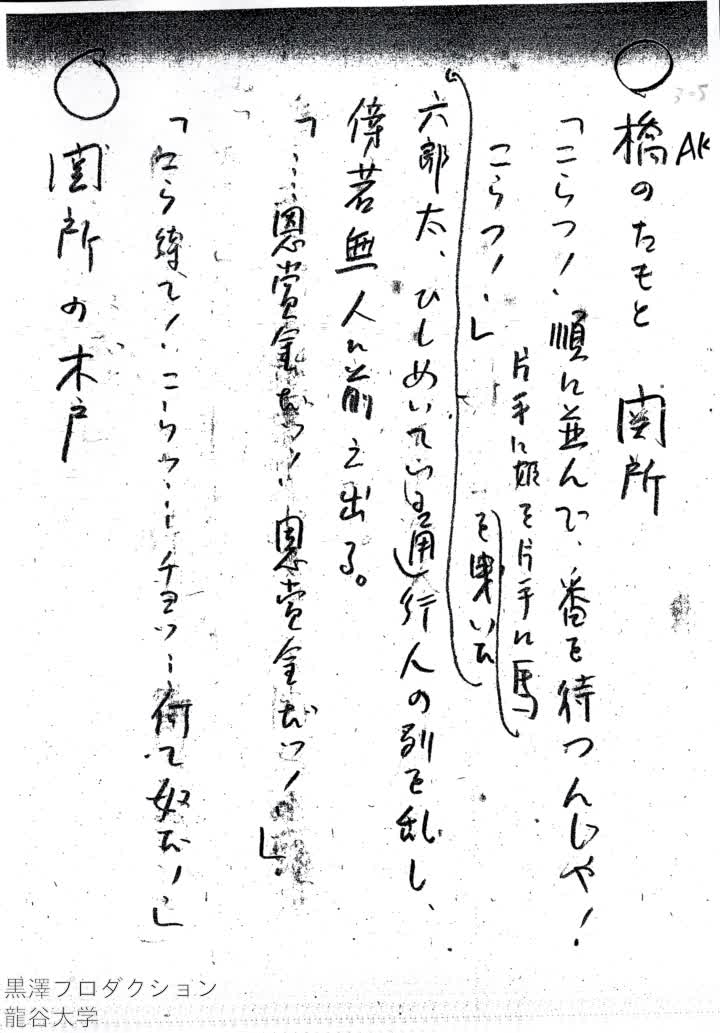 3-5
AK
○ 橋のたもと 関所
「こらっ！順に並んで、番を待つんじゃ！
こらっ！」
片手に姫を片手に馬
を曳いた
六郎太、ひしめいている通行人の列を乱し、
傍若無人に前え出る。
「…恩賞金だっ！恩賞金だっ！」
「こら待て！こらっ…チョッ…何て奴だ！」
○ 関所の木戸
黒澤プロダクション
龍谷大学